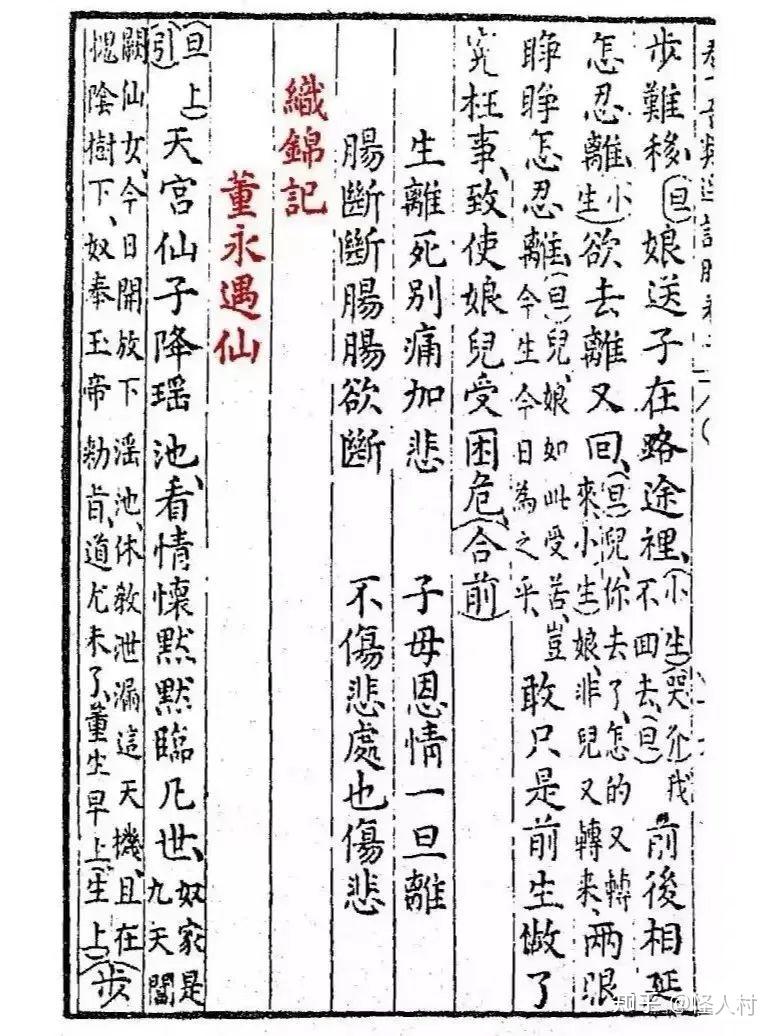 步難移、(旦)娘送子在路途裡、(小生)(哭介)我不回去、(旦)前後相延
怎忍離、(小生)欲去離又回、(旦)兒、你去了、怎的又轉來、(小生)娘、非兒又轉來、兩眼
睁睁怎忍離、(旦)兒、娘如此受苦、豈今生今日為之乎、敢只是前生做了
冤枉事、致使娘兒受困危、(合前)
生離死別痛加悲 子母恩情一旦離
腸斷斷腸腸欲斷 不傷悲處也傷悲
織錦記
董永遇仙
(旦上)(引)天宮仙子降瑶池、看情懷默默臨凡世、奴家是九天閶
闕仙女、今日開放下池、休教泄漏這天機、且在
槐陰樹下、奴奉玉帝勑旨、道尤未了、董生早上、(生上)步
知乎 @怪人村